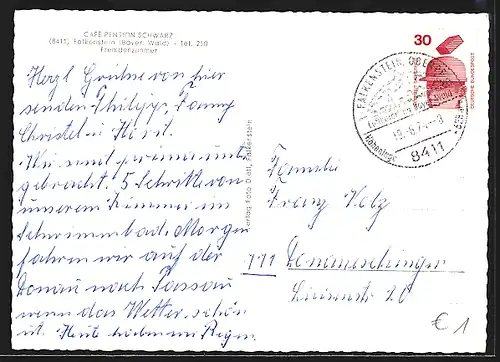 CAFÉ-PENSION SCHWARZ
(8411) Falkenstein (Bayer. Wald) - Tel. 250
Fremdenzimmer
Herzl Grüße von hier
senden Philipp, Fanny
Christel u Horst.
Wir sind prima unter
gebracht. 5 Schritte von
unserem Zimmer im
Schwimmbad. Morgen
fahren wir auf der
Donau nach Passau
wenn das Wetter schön
ist. Heute haben wir Regen
Verlag Foto Dietl, Falkenstein
30
DEUTSCHE BUNDESPOST
FALKENSTEIN, OBERPF
8411
Familie
Franz Volz
771 Donaueschingen
Luisenstr. 20
€ 1